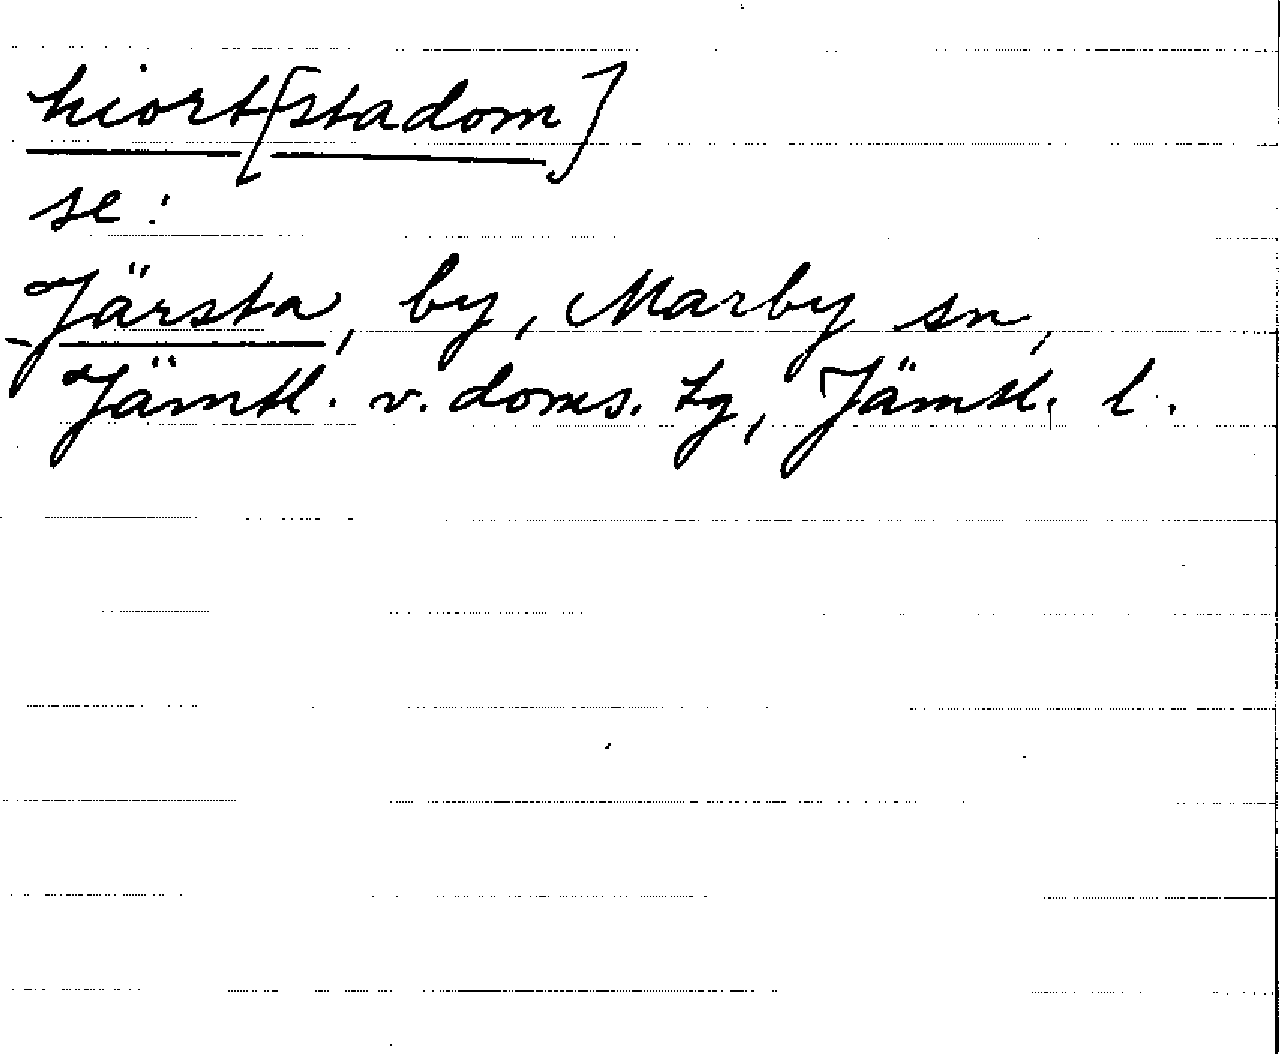 hiort[stadom]
se:
Järsta, by, Marby sn,
Jämtl. v. doms. tg, Jämtl. l.